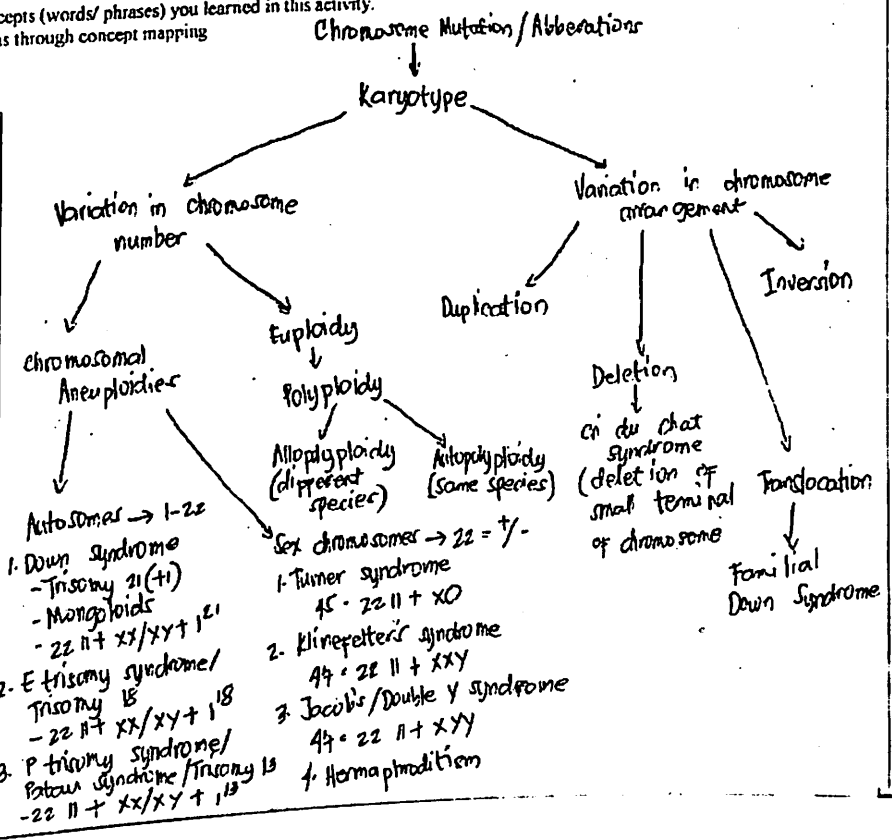 cepts (words/ phrases) you learned in this activity.
s through concept mapping
Chromosome Mutation/Abberations
Karyotype
Variation in chromosome
number
Variation in chromosome
arrangement
Chromosomal
Aneuploidies
Euploidy
Polyploidy
Allopolyploidy
(different
species)
Autopolyploidy
(same species)
Duplication
Deletion
cri du chat
syndrome
(deletion of
small terminal
of chromosome
Translocation
Familial
Down Syndrome
Inversion
Autosomes → 1-22
1. Down syndrome
- Trisomy 21 (+1)
- Mongoloids
- 22 II + XX/XY + 1²¹
2. E trisomy syndrome/
Trisomy 18
- 22 II + XX/XY + 1¹⁸
3. P trisomy syndrome/
Patau syndrome/Trisomy 13
- 22 II + XX/XY + 1¹³
Sex chromosomes → 22 = +/-
1. Turner syndrome
45 = 22 II + XO
2. Klinefelter's syndrome
47 = 22 II + XXY
3. Jacob's/Double Y syndrome
47 = 22 II + XYY
4. Hermaphroditism